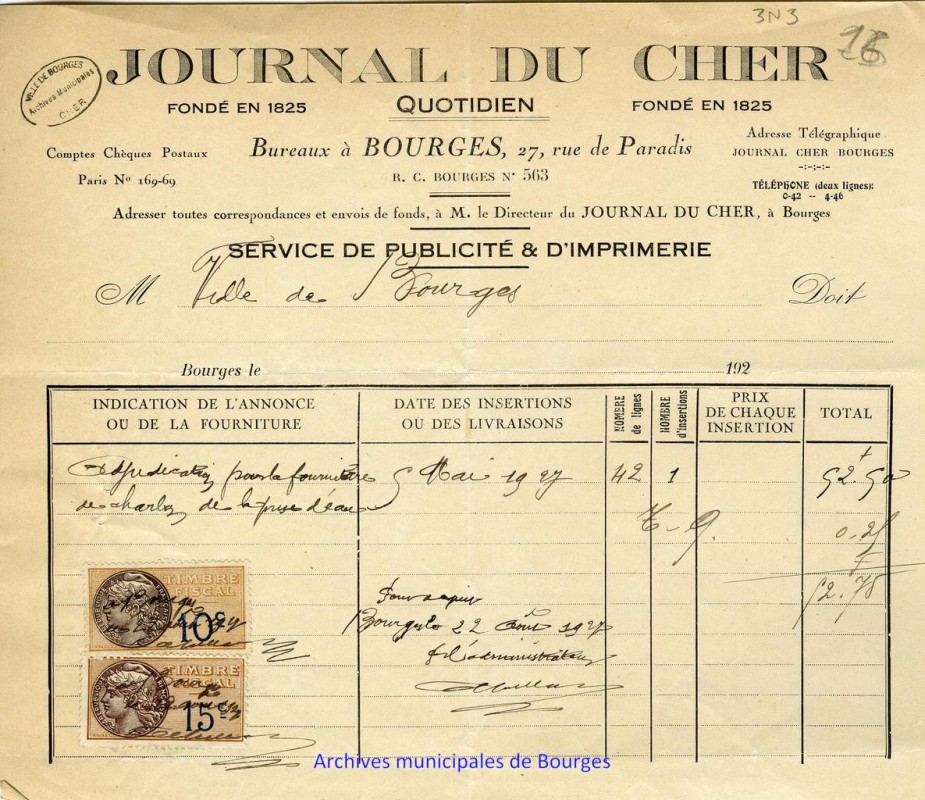 3N3
16
VILLE DE BOURGES
Archives Municipales
CHER
JOURNAL DU CHER
FONDÉ EN 1825
QUOTIDIEN
FONDÉ EN 1825
Comptes Chèques Postaux
Paris Nº 169-69
Bureaux à BOURGES, 27, rue de Paradis
R. C. BOURGES Nº 563
Adresse Télégraphique
JOURNAL CHER BOURGES
-:-:-:-
TÉLÉPHONE (deux lignes):
0-42 -- 4-46
Adresser toutes correspondances et envois de fonds, à M. le Directeur du JOURNAL DU CHER, à Bourges
SERVICE DE PUBLICITÉ & D'IMPRIMERIE
M Ville de Bourges Doit
Bourges le 192
INDICATION DE L'ANNONCE
OU DE LA FOURNITURE
DATE DES INSERTIONS
OU DES LIVRAISONS
NOMBRE
de lignes
NOMBRE
d'insertions
PRIX
DE CHAQUE
INSERTION
TOTAL
Adjudication pour la fourniture 5 Mai 1927 42 1 52.50
de charbon de la prise d'eau
T-Q. 0.25
52.75
Pour acquit
Bourges le 22 Août 1927
P. l'administrateur
TIMBRE
FISCAL
10c
TIMBRE
FISCAL
15c
Archives municipales de Bourges